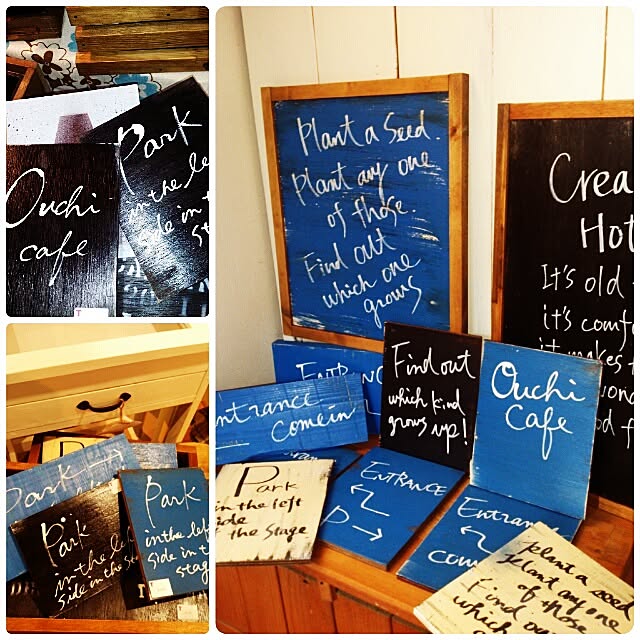 Park
in the le
side in t
st
Ouchi
cafe
T
Park
Park
in the lef
side in the sta
Park
in the left
side in th
stag
Plant a Seed.
Plant any one
of those.
Find out
which one
grows
Crea
Hot
It's old
it's comf
it makes t
won
d f
ENTRANC
ntrance
come in
Find out
which kind
grows up!
Ouchi
Cafe
Park
in the left
side
f the Stage
ENTRANCE
P
Entran
com
plant a seed
plant any one
of those
Find ou
which